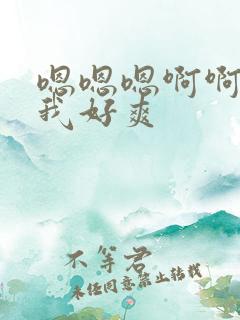 嗯嗯嗯啊啊
我好爽
不等君
未经同意禁止转载